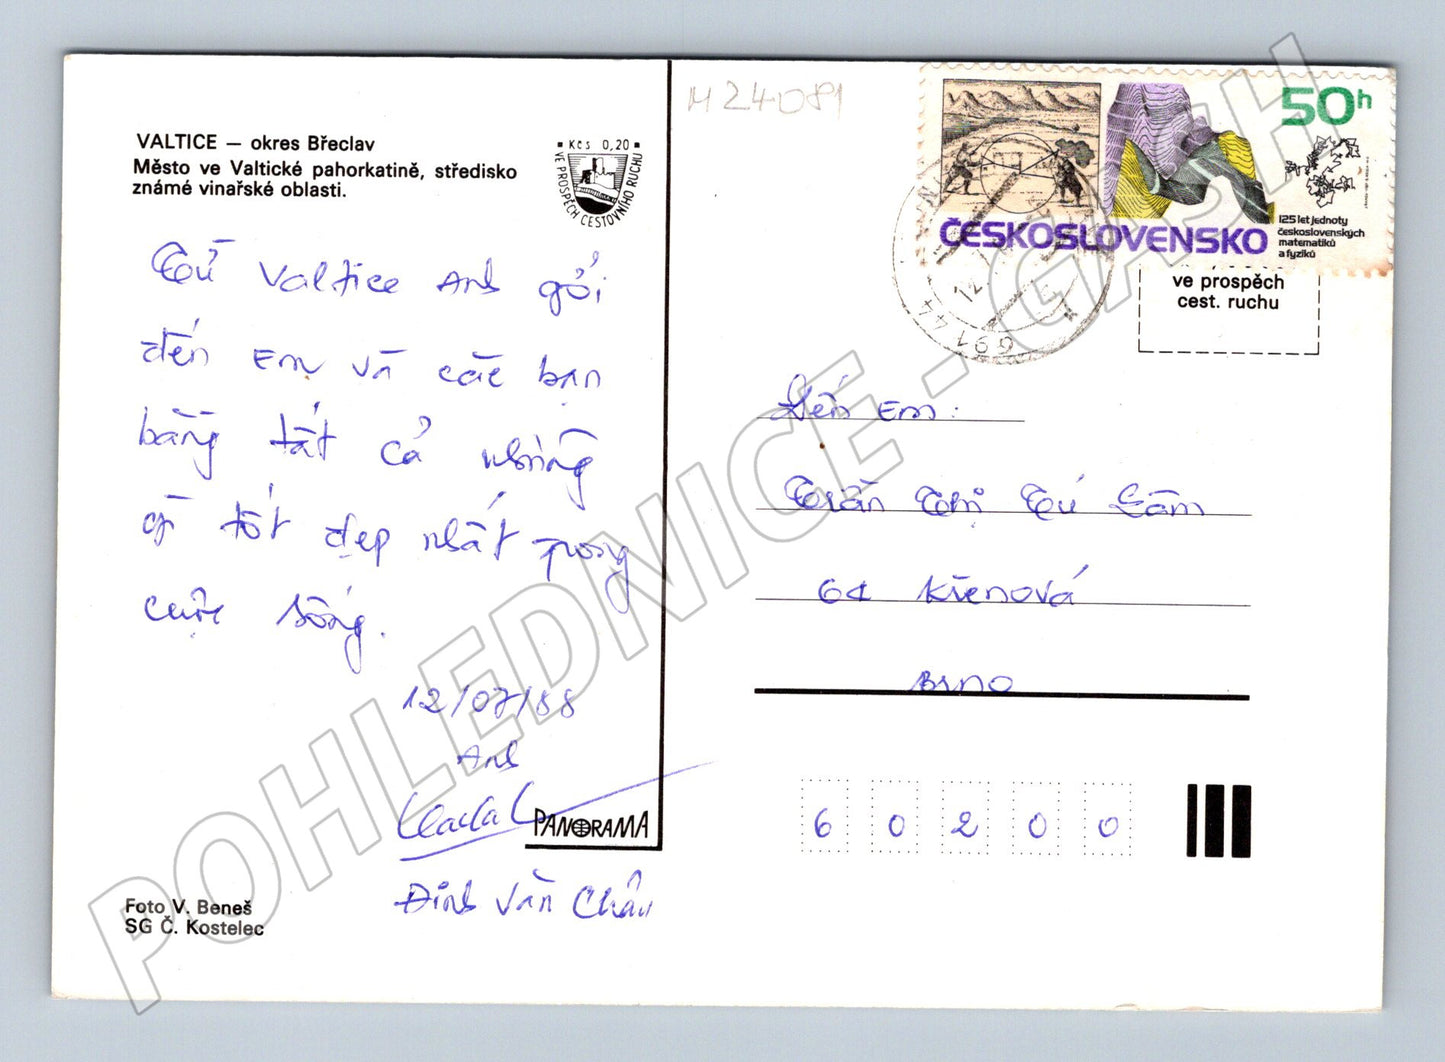 VALTICE — okres Břeclav
Město ve Valtické pahorkatině, středisko
známé vinařské oblasti.
Kčs 0,20
VE PROSPĚCH CESTOVNÍHO RUCHU
Từ Valtice Anh gởi
đến Em và các bạn
bằng tất cả những
gì tốt đẹp nhất trong
cuộc sống.
12/07/88
Anh
PANORAMA
Đinh Văn Châu
Foto V. Beneš
SG Č. Kostelec
M 24081
50h
ČESKOSLOVENSKO
125 let jednoty
československých
matematiků
a fyziků
ve prospěch
cest. ruchu
691 44
Đến Em:
Trần Thị Tú Lâm
64 Křenová
Brno
6 0 2 0 0
POHLEDNICE - GASH